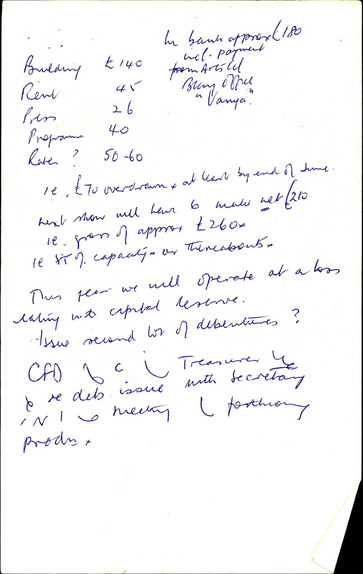 In bank approx £180
incl. payment
from Arts Cl
Being Office
"Vanya."
Building £140
Rent 45
Press 26
Programe 40
Rates ? 50-60
ie. £70 overdrawn at least by end of June.
next show will have to make net £210
ie. gross of approx £260
ie 85% capacity or thereabouts
This year we will operate at a loss
eating into capital reserve.
Issue second lot of debentures ?
C Treasurer
re debs issue with secretary
meeting